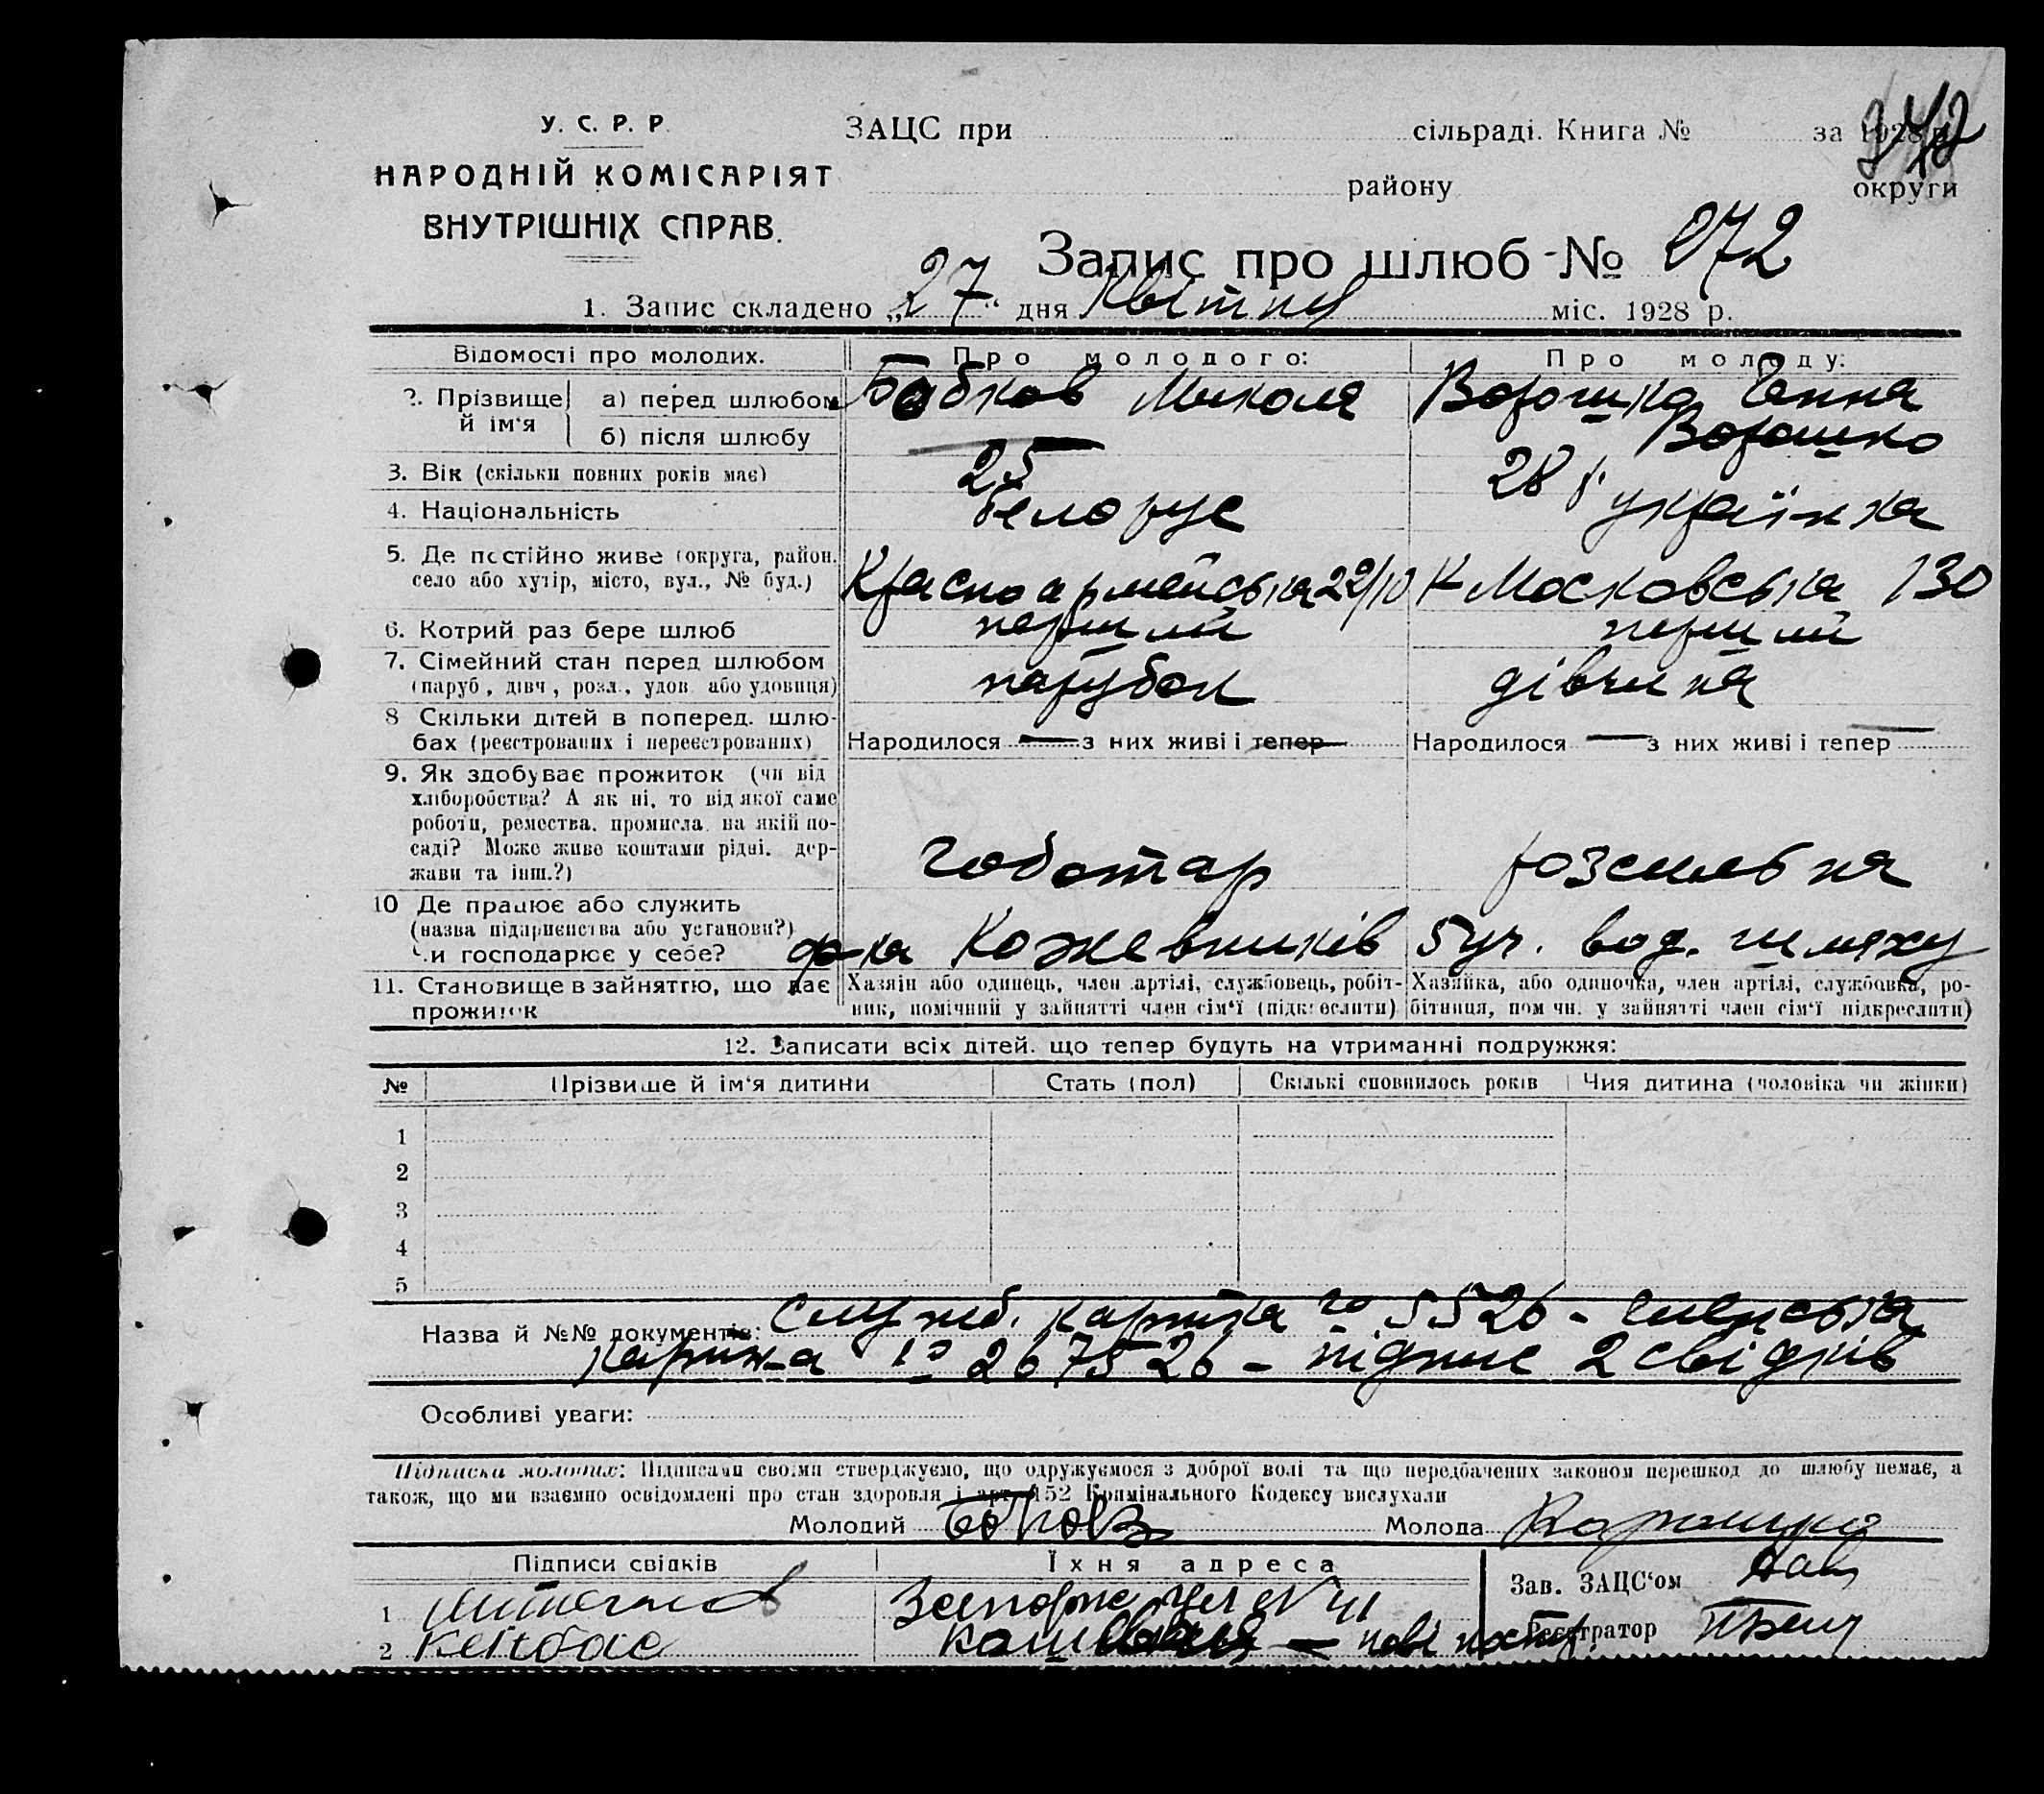 У. С. Р. Р.
НАРОДНІЙ КОМІСАРІЯТ
ВНУТРІШНІХ СПРАВ.
ЗАЦС при сільраді. Книга № за 1928 р.
району округи
Запис про шлюб № 272
1. Запис складено „27“ дня Квітня міс. 1928 р.
Відомості про молодих. Про молодого: Про молоду:
2. Прізвище й ім'я а) перед шлюбом Бобков Микола Ворошко Ганна
б) після шлюбу — Ворошко
3. Вік (скільки повних років має) 25 28 р.
4. Національність белорус українка
5. Де постійно живе (округа, район, село або хутір, місто, вул., № буд.) Красноармейська 22/10 К Московська 130
6. Котрий раз бере шлюб перший перший
7. Сімейний стан перед шлюбом (паруб., дівч., розл., удов. або удовиця) парубок дівчина
8 Скільки дітей в поперед. шлюбах (реєстрованих і нереєстрованих) Народилося — з них живі і тепер — Народилося — з них живі і тепер —
9. Як здобуває прожиток (чи від хліборобства? А як ні, то від якої саме роботи, ремества, промисла, на якій посаді? Може живе коштами рідні, держави та інш.?) чоботар розсильна
10 Де працює або служить (назва підприємства або установи?) Чи господарює у себе? ф-ка Кожевників 5 уч. вод. шляху
11. Становище в зайняттю, що дає прожиток Хазяїн або одинець, член артілі, службовець, робітник, помічний у зайнятті член сім'ї (підкреслити) Хазяйка, або одиночка, член артілі, службовка, робітниця, помічн. у зайнятті член сім'ї (підкреслити)
12. Записати всіх дітей, що тепер будуть на утриманні подружжя:
№ Прізвище й ім'я дитини Стать (пол) Скількі сповнилось років Чия дитина (чоловіка чи жінки)
1
2
3
4
5
Назва й №№ документів: Служб. картка № 5526 - членська
картка № 267526 - підпис 2 свідків
Особливі уваги:
Підписка молодих: Підписами своїми стверджуємо, що одружуємося з доброї волі та що передбачених законом перешкод до шлюбу немає, а
також, що ми взаємно освідомлені про стан здоровля і арт. 152 Кримінального Кодексу вислухали
Молодий Бобков Молода Ворошко
Підписи свідків Їхня адреса Зав. ЗАЦС'ом
1
2 Реєстратор